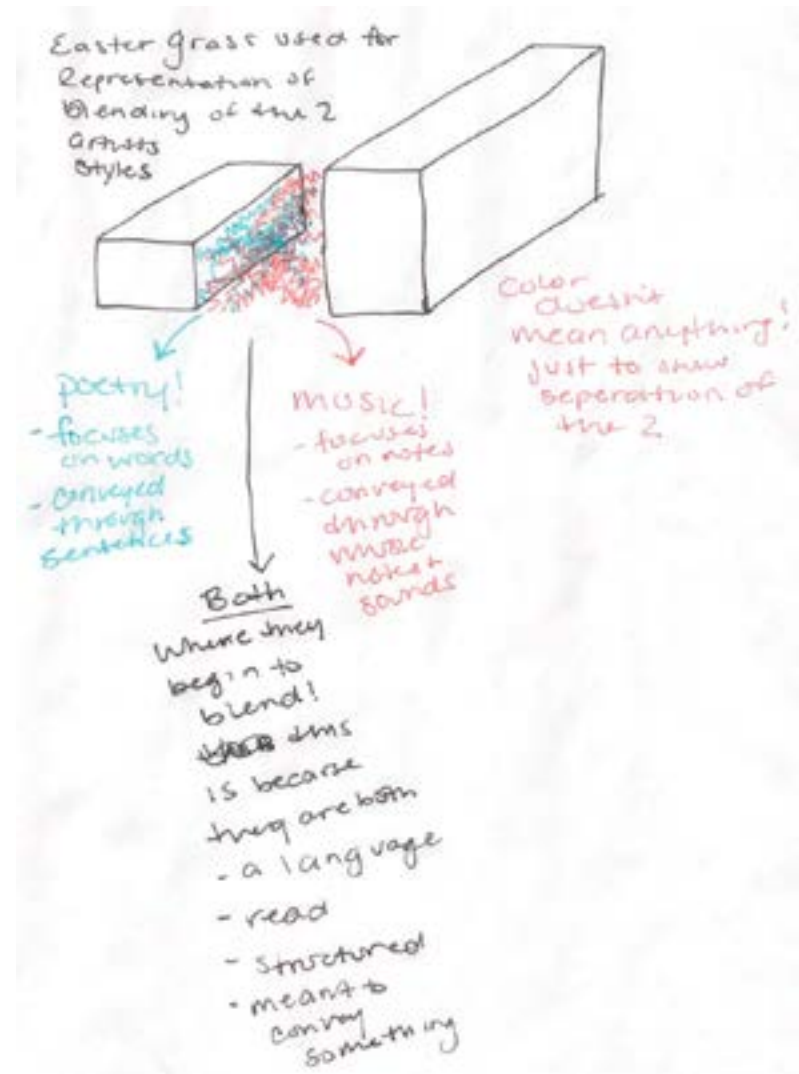 Easter grass used for
Representation of
Blending of the 2
artists
styles
Color
doesn't
mean anything!
just to show
seperation of
the 2
poetry!
- focuses
on words
- conveyed
through
sentences
music!
- focuses
on notes
- conveyed
through
music
notes +
sounds
Both
Where they
begin to
blend!
this
is because
they are both
- a language
- read
- structured
- meant to
convey
something